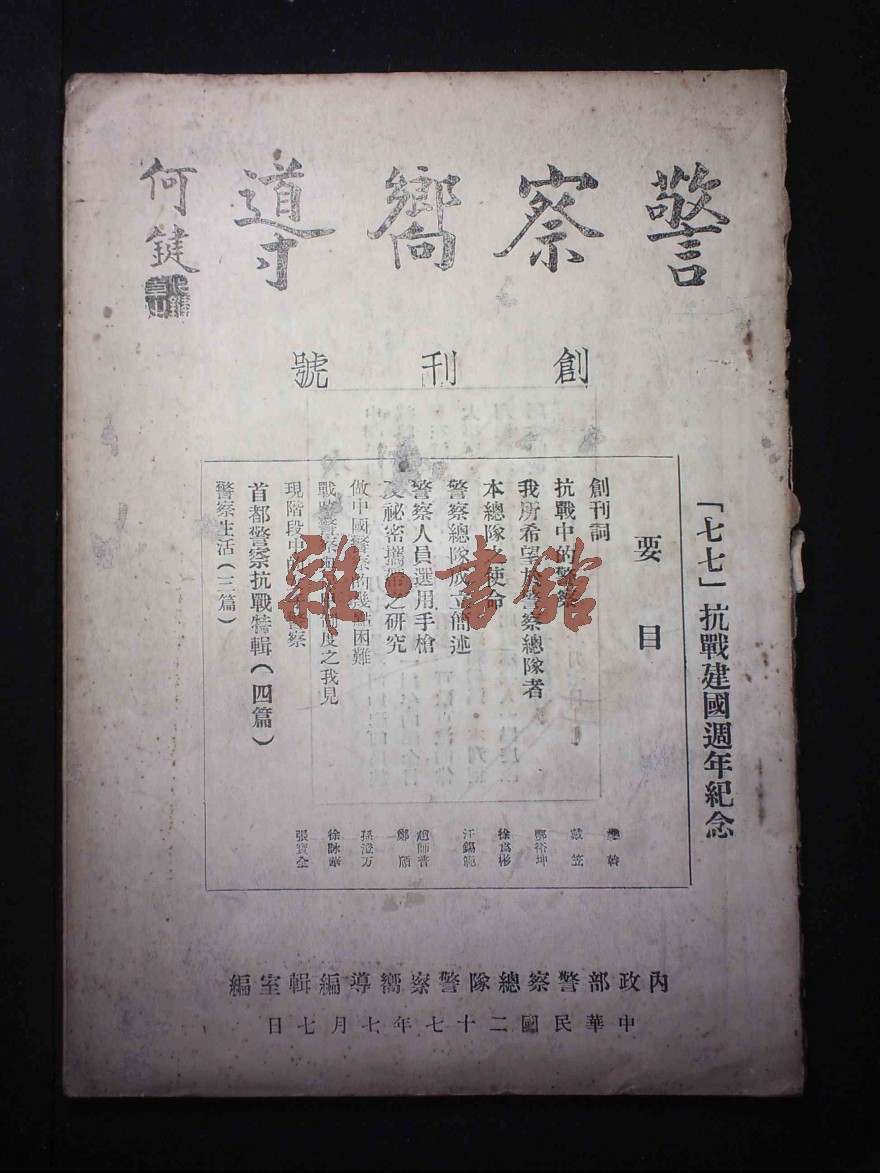 警察嚮導
何鍵
創刊號
「七七」抗戰建國週年紀念
要目
創刊詞
抗戰中的警察
我所希望於警察總隊者
本總隊之使命
警察總隊成立簡述
警察人員選用手槍
及祕密攜帶之研究
做中國警察的幾點困難
戰時警察 制度之我見
現階段中的 警察
首都警察抗戰特輯(四篇)
警察生活(三篇)
戴笠
酆裕坤
徐爲彬
汪錫龍
趙師普
鄭頎
孫澄方
徐詠華
張寶全
內政部警察總隊警察嚮導編輯室編
中華民國二十七年七月七日
雜·書館